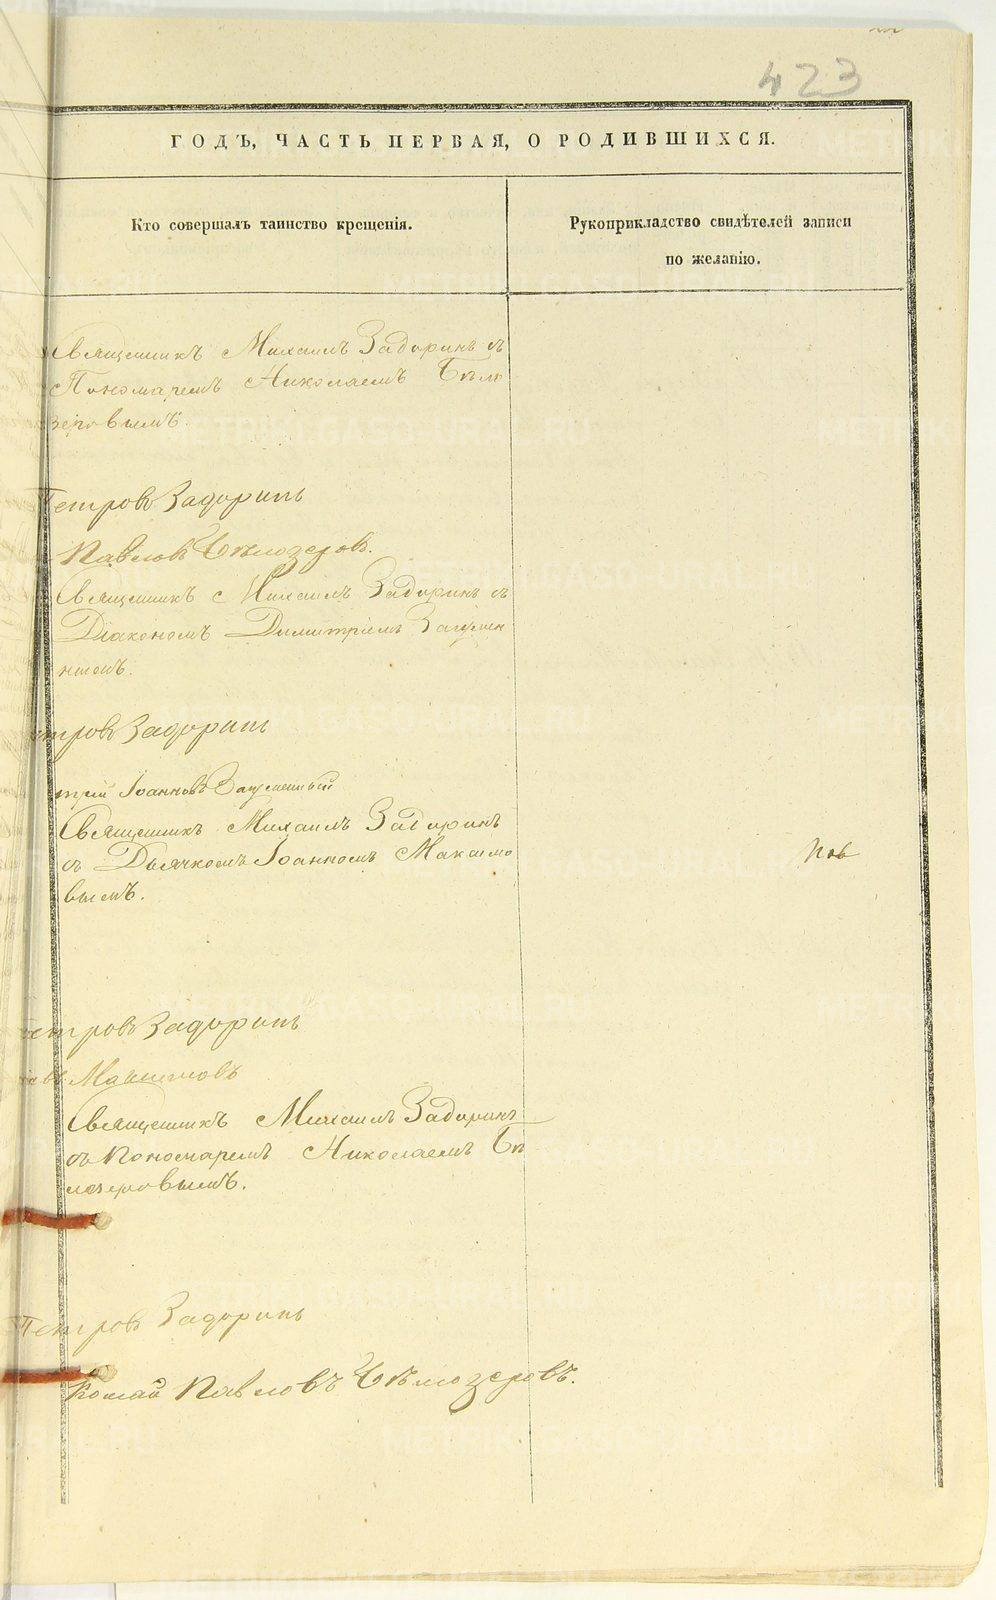 423
ГОДЪ, ЧАСТЬ ПЕРВАЯ, О РОДИВШИХСЯ.
Кто совершалъ таинство крещенія.
Рукоприкладство свидѣтелей записи
по желанію.
Священникъ Михаилъ Задоринъ съ
Пономаремъ Николаемъ Бѣло
зеровымъ.
Петровъ Задоринъ
Павловъ Бѣлозеровъ.
Священникъ Михаилъ Задоринъ съ
Діакономъ Димитріемъ
Петровъ Задоринъ
трій Іоанновъ
Священникъ Михаилъ Задоринъ
съ Дьячкомъ Іоанномъ Максимо
вымъ.
Петровъ Задоринъ
Максимовъ
Священникъ Михаилъ Задоринъ
съ Пономаремъ Николаемъ Бѣ
лозеровымъ.
Петровъ Задоринъ
колай Павловъ Бѣлозеровъ.
METRIKI.GASO-URAL.RU